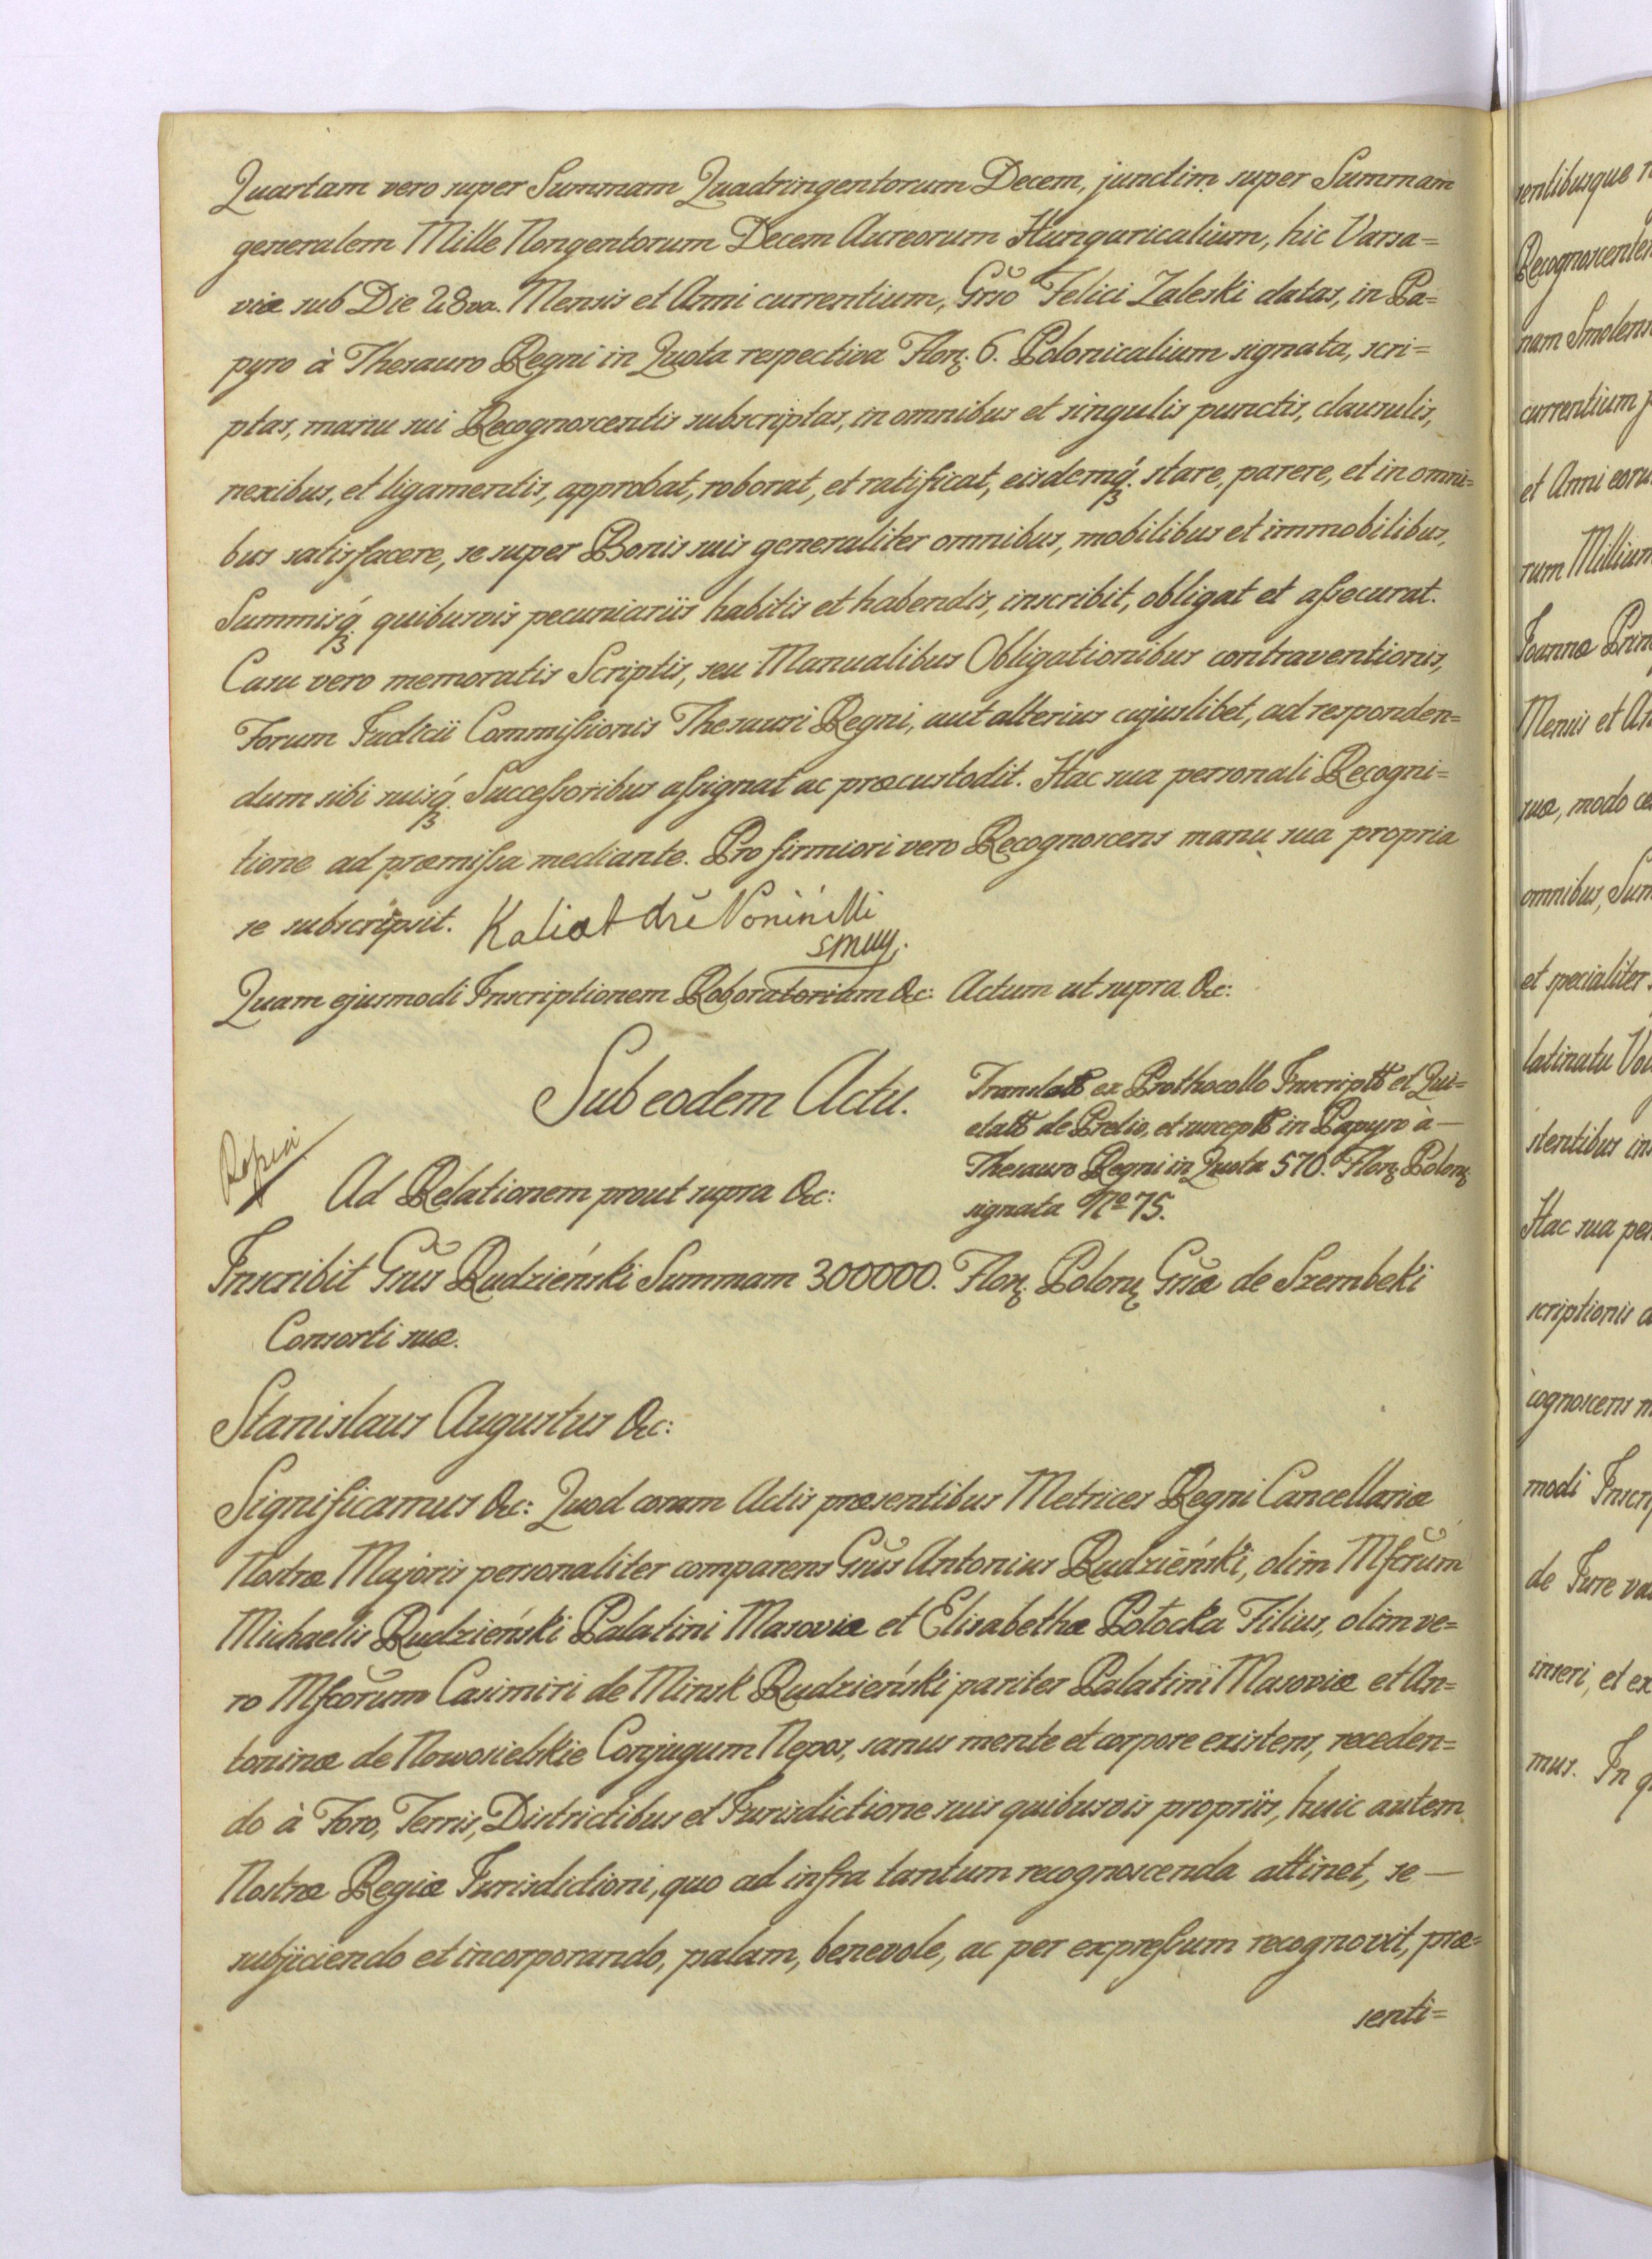 Quartam vero super Summam Quadringentorum Decem, junctim super Summam
generalem Mille Nongentorum Decem Aureorum Hungaricalium, hic Varsa=
viæ sub Die 28va. Mensis et Anni currentium, Grso Felici Zaleski datas, in Pa=
pyro à Thesauro Regni in Quota respectiva Flor. 6. Polonicalium signata, scri=
ptas, manu sui Recognoscentis subscriptas, in omnibus et singulis punctis, clausulis,
nexibus, et ligamentis, approbat, roborat, et ratificat, eisdemq. stare, parere, et in omni=
bus satisfacere, se super Bonis suis generaliter omnibus, mobilibus et immobilibus,
Summisq. quibusvis pecuniariis habitis et habendis, inscribit, obligat et aſsecurat.
Casu vero memoratis Scriptis, seu Manualibus Obligationibus contraventionis,
Forum Judicii Commiſsionis Thesauri Regni, aut alterius cujuslibet, ad responden=
dum sibi suisq. Succeſsoribus aſsignat ac præcustodit. Hac sua personali Recogni=
tione ad præmiſsa mediante. Pro firmiori vero Recognoscens manu sua propria
se subscripsit.
Quam ejusmodi Inscriptionem Roboratoriam &c: Actum ut supra &c:
Sub eodem Actu.
Translatt ex Prothocollo Inscriptt et Qui=
etatt de Prelio, et susceptt in Papyro à —
Thesauro Regni in Quota 570. Flor. Polon.
signata No 75.
Ad Relationem prout supra &c:
Inscribit Grsus Rudzieński Summam 300000. Flor. Polon. Grsæ de Szembeki
Consorti suæ.
Stanislaus Augustus &c:
Significamus &c: Quod coram Actis præsentibus Metrices Regni Cancellariæ
Nostræ Majoris personaliter comparens Grsus Antonius Rudzieński, olim Mfcorum
Michaelis Rudzieński Palatini Masoviæ et Elisabethæ Potocka Filius, olim ve=
ro Mfcorum Casimiri de Minsk Rudzieński pariter Palatini Masoviæ et An=
toninæ de Nowosielskie Conjugum Nepos, sanus mente et corpore existens, receden=
do à Foro, Terris, Districtibus et Jurisdictione suis quibusvis propriis, huic autem
Nostræ Regiæ Jurisdictioni, quo ad infra tantum recognoscenda attinet, se —
subjiciendo et incorporando, palam, benevole, ac per expreſsum recognovit, præ=
senti=